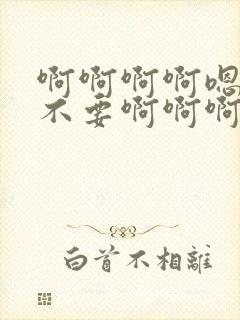 啊啊啊啊嗯
不要啊啊啊
白首不相離